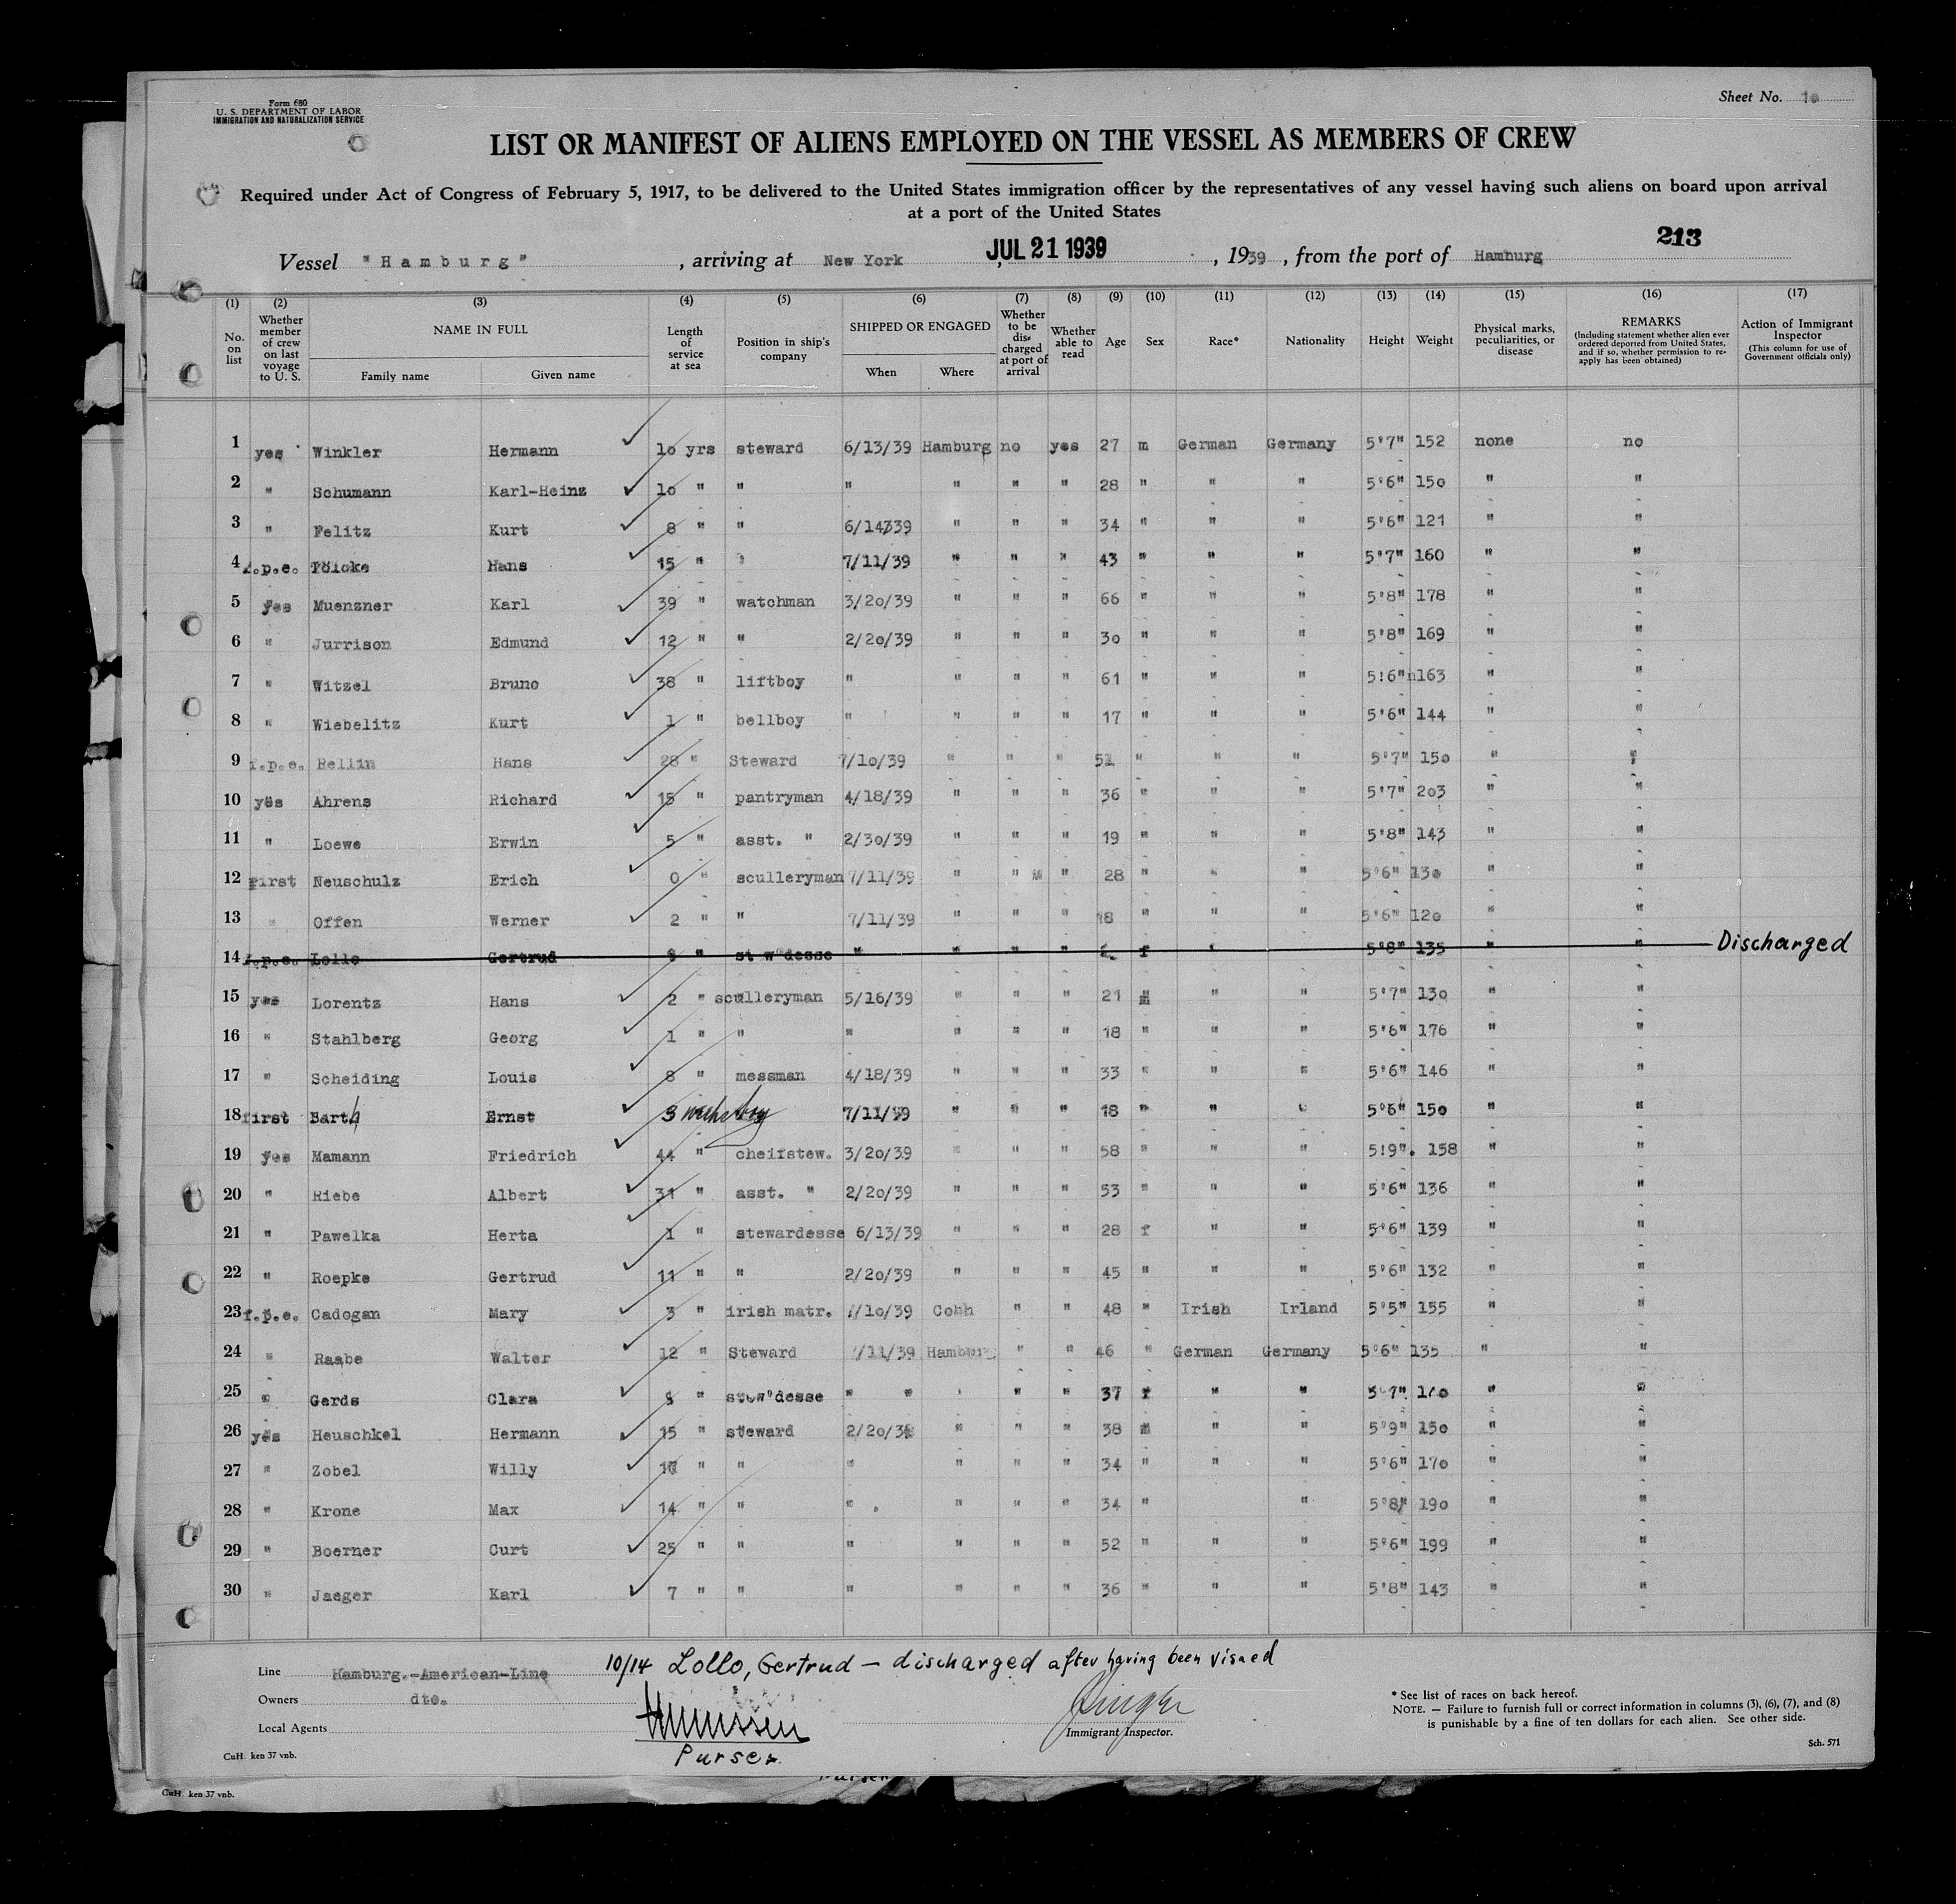 Form 680
U. S. DEPARTMENT OF LABOR
IMMIGRATION AND NATURALIZATION SERVICE
Sheet No. 10
LIST OR MANIFEST OF ALIENS EMPLOYED ON THE VESSEL AS MEMBERS OF CREW
Required under Act of Congress of February 5, 1917, to be delivered to the United States immigration officer by the representatives of any vessel having such aliens on board upon arrival
at a port of the United States
213
Vessel "Hamburg", arriving at New York JUL 21 1939, 1939, from the port of Hamburg
(1) (2) (3) (4) (5) (6) (7) (8) (9) (10) (11) (12) (13) (14) (15) (16) (17)
No. on list | Whether member of crew on last voyage to U. S. | NAME IN FULL Family name Given name | Length of service at sea | Position in ship's company | SHIPPED OR ENGAGED When Where | Whether to be discharged at port of arrival | Whether able to read | Age | Sex | Race* | Nationality | Height | Weight | Physical marks, peculiarities, or disease | REMARKS (Including statement whether alien ever ordered deported from United States, and if so, whether permission to reapply has been obtained) | Action of Immigrant Inspector (This column for use of Government officials only)
1 yes Winkler Hermann 10 yrs steward 6/13/39 Hamburg no yes 27 m German Germany 5'7" 152 none no
2 " Schumann Karl-Heinz 10 " " " " " " 28 " " " 5'6" 150 " "
3 " Felitz Kurt 8 " " 6/14339 " " " 34 " " " 5'6" 121 " "
4 f.p.e. Tölcke Hans 15 " " 7/11/39 " " " 43 " " " 5'7" 160 " "
5 yes Muenzner Karl 39 " watchman 3/20/39 " " " 66 " " " 5'8" 178 " "
6 " Jurrison Edmund 12 " " 2/20/39 " " " 30 " " " 5'8" 169 " "
7 " Witzel Bruno 38 " liftboy " " " " 61 " " " 5!6" 163 " "
8 " Wiebelitz Kurt 1 " bellboy " " " " 17 " " " 5'6" 144 " "
9 f.p.e. Rellin Hans 28 " Steward 7/10/39 " " " 51 " " " 5'7" 150 " "
10 yes Ahrens Richard 15 " pantryman 4/18/39 " " " 36 " " " 5'7" 203 " "
11 " Loewe Erwin 5 " asst. " 2/30/39 " " " 19 " " " 5'8" 143 " "
12 first Neuschulz Erich 0 " sculleryman 7/11/39 " " " 28 " " " 5'6" 130 " "
13 " Offen Werner 2 " " 7/11/39 " " " 18 " " " 5'6" 120 " "
14 f.p.e. Lollo Gertrud " stew'desse " " " " f " 5'8" 135 " " Discharged
15 yes Lorentz Hans 2 " sculleryman 5/16/39 " " " 21 m " " 5'7" 130 " "
16 " Stahlberg Georg 1 " " " " " " 18 " " " 5'6" 176 " "
17 " Scheiding Louis 8 " messman 4/18/39 " " " 33 " " " 5'6" 146 " "
18 first Barth Ernst 3 boy 7/11/39 " " " 18 " " " 5'6" 150 " "
19 yes Mamann Friedrich 44 " cheifstew. 3/20/39 " " " 58 " " " 5!9". 158 " "
20 " Riebe Albert 31 " asst. " 2/20/39 " " " 53 " " " 5'6" 136 " "
21 " Pawelka Herta 1 " stewardesse 6/13/39 " " " 28 f " " 5'6" 139 " "
22 " Roepke Gertrud 11 " " 2/20/39 " " " 45 " " " 5'6" 132 " "
23 f.p.e. Cadogan Mary 3 " irish matr. 7/10/39 Cobh " " 48 " Irish Irland 5'5" 155 " "
24 " Raabe Walter 12 " Steward 7/11/39 Hamburg " " 46 " German Germany 5'6" 135 " "
25 " Gerds Clara " stew'desse " " " " 37 f " " 5'7" " "
26 yes Heuschkel Hermann 15 " steward 2/20/39 " " " 38 m " " 5'9" 150 " "
27 " Zobel Willy " " " " " " 34 " " " 5'6" 170 " "
28 " Krone Max 14 " " " " " " 34 " " 5'8" 190 " "
29 " Boerner Curt 25 " " " " " " 52 " " " 5'6" 199 " "
30 " Jaeger Karl 7 " " " " " " 36 " " " 5'8" 143 " "
10/14 Lollo, Gertrud — discharged after having been visaed
Line Hamburg.-American-Line
Owners dto.
Local Agents
Purser.
Immigrant Inspector.
* See list of races on back hereof.
NOTE. — Failure to furnish full or correct information in columns (3), (6), (7), and (8)
is punishable by a fine of ten dollars for each alien. See other side.
CuH. ken 37 vnb.
Sch. 571
Purser
CuH. ken 37 vnb.